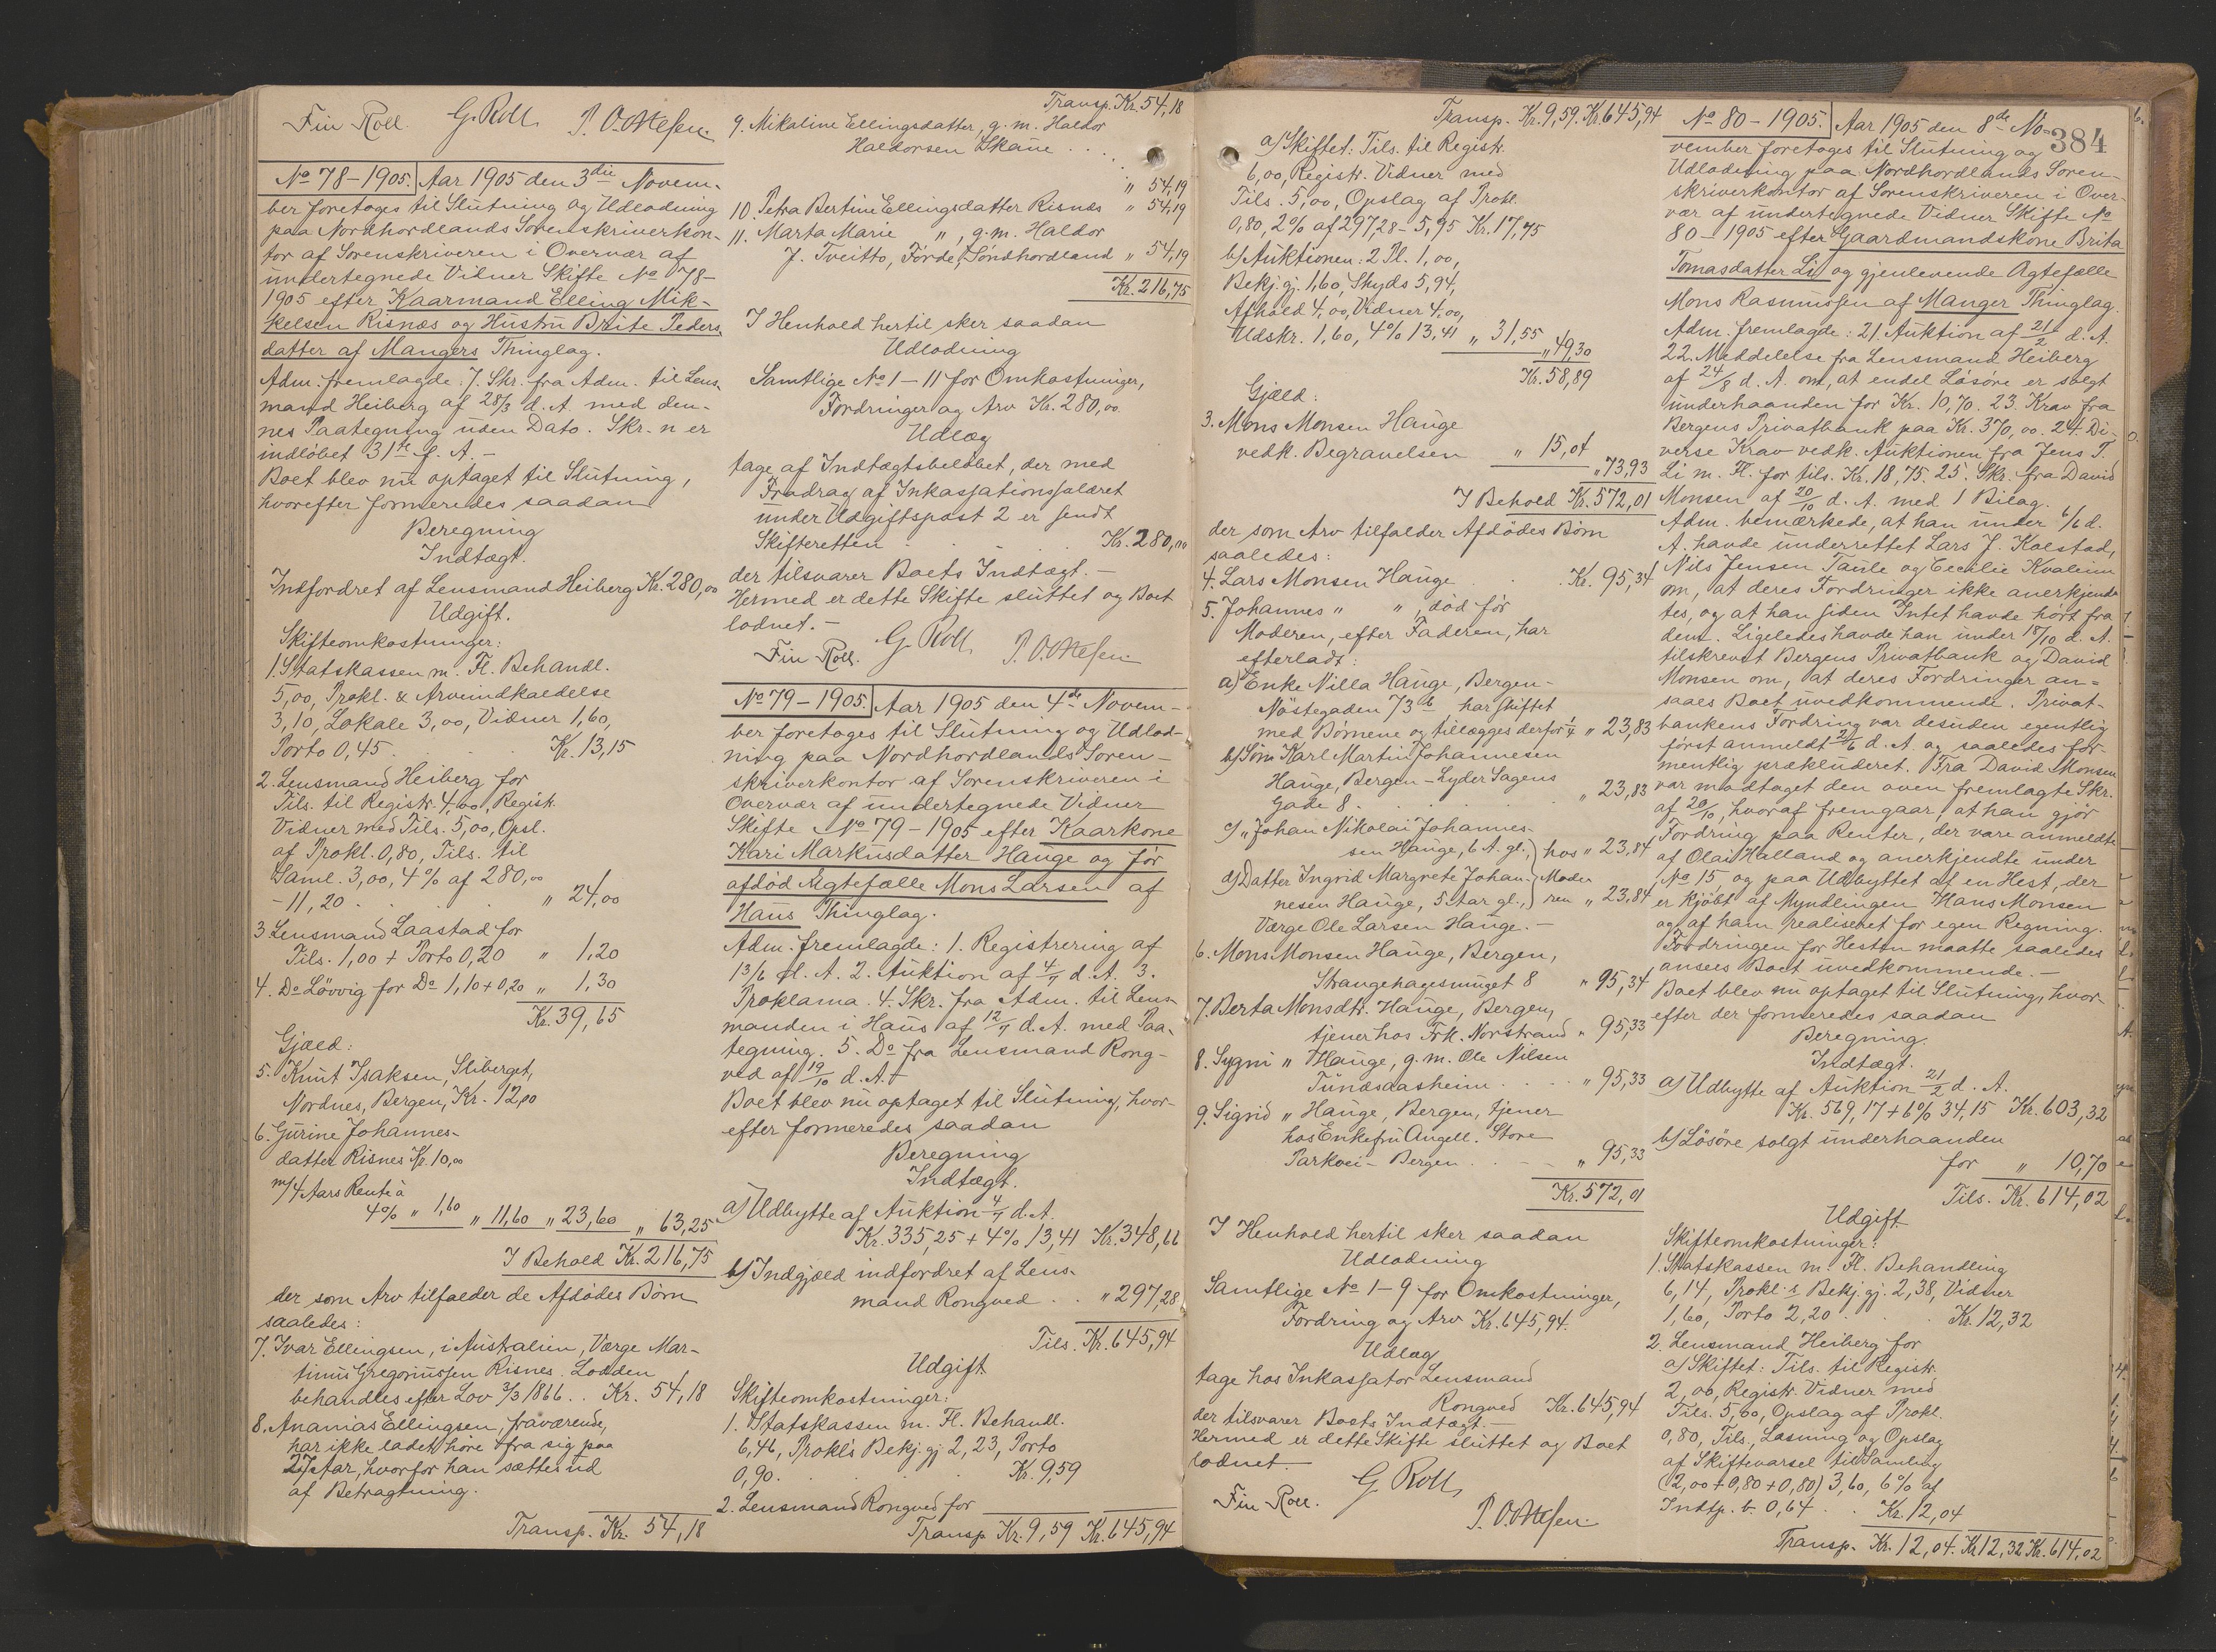 Fin Roll. G. Roll. P. O. Mesen.
No 78-1905. Aar 1905 den 3die Novem-
ber foretoges til Slutning og Udlodning
paa Nordhordlands Sorenskriverkon-
tor af Sorenskriveren i Overvær af
undertegnede Vidner Skifte No 78-
1905 efter Kaarmand Elling Mik-
kelsen Risnæs og Hustru Brite Peders
datter af Mangers Thinglag.
Adm. fremlagde: 7. Skr. fra Adm. til Lens-
mand Heiberg af 28/3 d. A. med den-
nes Paategning uden Dato. Skr.n er
indløbet 31te f. A. -
Boet blev nu optaget til Slutning,
hvorefter formeredes saadan
Beregning
Indtægt.
Indfordret af Lensmand Heiberg Kr. 280,00
Udgift.
Skifteomkostninger:
1. Statskassen m. Fl. Behandl.
5,00, Prokl. & Arveindkaldelse
3,10, Lokale 3,00, Vidner 1,60,
Porto 0,45 . . . Kr. 13,15
2. Lensmand Heiberg for
Tils. til Registr. 4,00, Registr.
Vidner med Tils. 5,00, Opsl.
af Prokl. 0,80, Tils. til
Saml. 3,00, 4% af 280,00
- 11,20 . . . " 24,00
3 Lensmand Laastad for
Tils. 1,00 + Porto 0,20 " 1,20
4. Do Løvvig for Do 1,10 + 0,20 " 1,30
Kr. 39,65
Gjæld:
5. Knut Isaksen, Sliberget,
Nordnes, Bergen, Kr. 12,00
6. Gurine Johannes-
datter Risnes Kr. 10,00
m/4 Aars Rente à
4% " 1,60 " 11,60 " 23,60 " 63,25
I Behold Kr. 216,75
der som Arv tilfalder de Afdødes Børn
saaledes:
7. Ivar Ellingsen, i Australien, Værge Mar-
tinus Gregoriussen Risnes. Lodden
behandles efter Lov 3/3 1866 . . Kr. 54,18
8. Ananias Ellingsen, fraværende,
har ikke ladet høre fra sig paa
27 Aar, hvorfor han sættes ud
af Betragtning.
Transp. Kr. 54,18
Transp. Kr. 54,18
9. Mikaline Ellingsdatter, g. m. Haldor
Haldorsen Skane . . .
" 54,19
10. Petra Bertine Ellingsdatter Risnæs " 54,19
11. Marta Marie " , g. m. Haldor
J. Tveitto, Førde, Søndhordland " 54,19
Kr. 216,75
I Henhold hertil sker saadan
Udlodning
Samtlige No 1-11 for Omkostninger,
Fordringer og Arv Kr. 280,00.
Udlæg
tage af Indtægtsbeløbet, der med
Fradrag af Inkassationssalæret
under Udgiftspost 2 er sendt
Skifteretten . . . Kr. 280,00
der tilsvarer Boets Indtægt. -
Hermed er dette Skifte sluttet og Boet
lodnet. -
Fin Roll. G. Roll. P. O. Mesen.
No 79-1905. Aar 1905 den 4de Novem-
ber foretoges til Slutning og Udlod-
ning paa Nordhordlands Soren-
skriverkontor af Sorenskriveren i
Overvær af undertegnede Vidner
Skifte No 79-1905 efter Kaarkone
Kari Markusdatter Hauge og før
afdød Ægtefælle Mons Larsen af
Haus Thinglag.
Adm. fremlagde: 1. Registrering af
13/6 d. A. 2. Auktion af 4/7 d. A. 3.
Proklama. 4. Skr. fra Adm. til Lens-
manden i Haus af 12/7 d. A. med Paa-
tegning. 5. Do fra Lensmand Rong-
ved af 19/10 d. A. -
Boet blev nu optaget til Slutning, hvor-
efter formeredes saadan
Beregning
Indtægt.
a) Udbytte af Auktion 4/7 d. A.
Kr. 335,25 + 4% 13,41 Kr. 348,66
b) Indgjæld indfordret af Lens-
mand Rongved . . " 297,28
Tils. Kr. 645,94
Udgift
Skifteomkostninger:
1. Statskassen m. Fl. Behandl.
6,46, Prokl.s Bekj. gj. 2,23, Porto
0,90 . . . Kr. 9,59
2. Lensmand Rongved for
Transp. Kr. 9,59 Kr. 645,94
Transp. Kr. 9,59. Kr. 645,94
a) Skiftet: Tils. til Registr.
6,00, Registr. Vidner med
Tils. 5,00, Opslag af Prokl.
0,80, 2% af 297,28 - 5,95 Kr. 17,75
b) Auktionen: 2 Pl. 1,00,
Bekj. gj. 1,60, Skyds 5,94,
Afhold 4,00, Vidner 4,00,
Udskr. 1,60, 4% 13,41 " 31,55
" 49,30
Kr. 58,89
Gjæld:
3. Mons Monsen Hauge
vedk. Begravelsen " 15,04
" 73,93
I Behold Kr. 572,01
der som Arv tilfalder Afdødes Børn
saaledes:
4. Lars Monsen Hauge . . Kr. 95,34
5. Johannes " " , død før
Moderen, efter Faderen, har
efterladt:
a) Enke Nilla Hauge, Bergen -
Nøstegaden 73b har skiftet
med Børnene og tillægges derfor 1/4 " 23,83
b) Søn Karl Martin Johannesen
Hauge, Bergen - Lyder Sagens
Gade 8 . . . " 23,83
c) " Johan Nikolai Johannes-
sen Hauge, 6 A. gl., hos " 23,84
d) Datter Ingrid Margrete Johan- Mode-
nesen Hauge, 5 Aar gl., ren " 23,84
Værge Ole Larsen Hauge. -
6. Mons Monsen Hauge, Bergen,
Strangehagesmuget 8 " 95,34
7. Berta Monsdtr. Hauge, Bergen,
tjener hos Frk. Norstrand " 95,33
8. Sygni " Hauge, g. m. Ole Nilsen
Tunæsaasheim . . . " 95,33
9. Sigrid " Hauge, Bergen, tjener
hos Enkefru Angell. Store
Parkvei - Bergen . . . " 95,33
Kr. 572,01
I Henhold hertil sker saadan
Udlodning
Samtlige No 1-9 for Omkostninger,
Fordring og Arv Kr. 645,94.
Udlæg
tage hos Inkassator Lensmand
Rongved Kr. 645,94
der tilsvarer Boets Indtægt. -
Hermed er dette Skifte sluttet og Boet
lodnet. -
Fin Roll. G. Roll. P. O. Mesen.
384
No 80-1905. Aar 1905 den 8de No-
vember foretoges til Slutning og
Udlodning paa Nordhordlands Soren-
skriverkontor af Sorenskriveren i Over-
vær af undertegnede Vidner Skifte No
80-1905 efter Gaardmandskone Brita
Tomasdatter Li og gjenlevende Ægtefælle
Mons Rasmussen af Manger Thinglag.
Adm. fremlagde: 21. Auktion af 21/2 d. A.
22. Meddelelse fra Lensmand Heiberg
af 24/8 d. A. om, at endel Løsøre er solgt
underhaanden for Kr. 10,70. 23. Krav fra
Bergens Privatbank paa Kr. 370,00. 24. Di-
verse Krav vedk. Auktionen fra Jens T.
Li m. Fl. for tils. Kr. 18,75. 25. Skr. fra David
Monsen af 20/10 d. A. med 1 Bilag.
Adm. bemærkede, at han under 6/6 d.
A. havde underrettet Lars J. Kolstad,
Nils Jensen Taule og Cecilie Kvalem
om, at deres Fordringer ikke anerkjend-
tes, og at han siden Intet havde hørt fra
dem. Ligeledes havde han under 18/10 d. A.
tilskrevet Bergens Privatbank og David
Monsen om, at deres Fordringer an-
saaes Boet uvedkommende. Privat-
bankens Fordring var desuden egentlig
først anmeldt 21/6 d. A. og saaledes for-
mentlig prækluderet. Fra David Monsen
var modtaget den oven fremlagte Skr.
af 20/10, hvoraf fremgaar, at han gjør
Fordring paa Renter, der vare anmeldte
af Olai Halland og anerkjendte under
No 15, og paa Udbyttet af en Hest, der
er kjøbt af Myndlingen Hans Monsen
og af ham realiseret for egen Regning.
Fordringen for Hesten maatte saaledes
ansees Boet uvedkommende. -
Boet blev nu optaget til Slutning, hvor-
efter der formeredes saadan
Beregning.
Indtægt.
a) Udbytte af Auktion 21/2 d. A.
Kr. 569,17 + 6% 34,15 Kr. 603,32
b) Løsøre solgt underhaanden
for " 10,70
Tils. Kr. 614,02
Udgift
Skifteomkostninger:
1. Statskassen m. Fl. Behandling
6,14, Prokl.s Bekj. gj. 2,38, Vidner
1,60, Porto 2,20 . . Kr. 12,32
2. Lensmand Heiberg for
a) Skiftet: Tils. til Registr.
2,00, Registr. Vidner med
Tils. 5,00, Opslag af Prokl.
0,80, Tils., Læsning og Opslag
af Skiftevarsel til Samling
(2,00 + 0,80 + 0,80) 3,60, 6% af
Indtp. b. 0,64 . . Kr. 12,04
Transp. Kr. 12,04. Kr. 12,32 Kr. 614,02